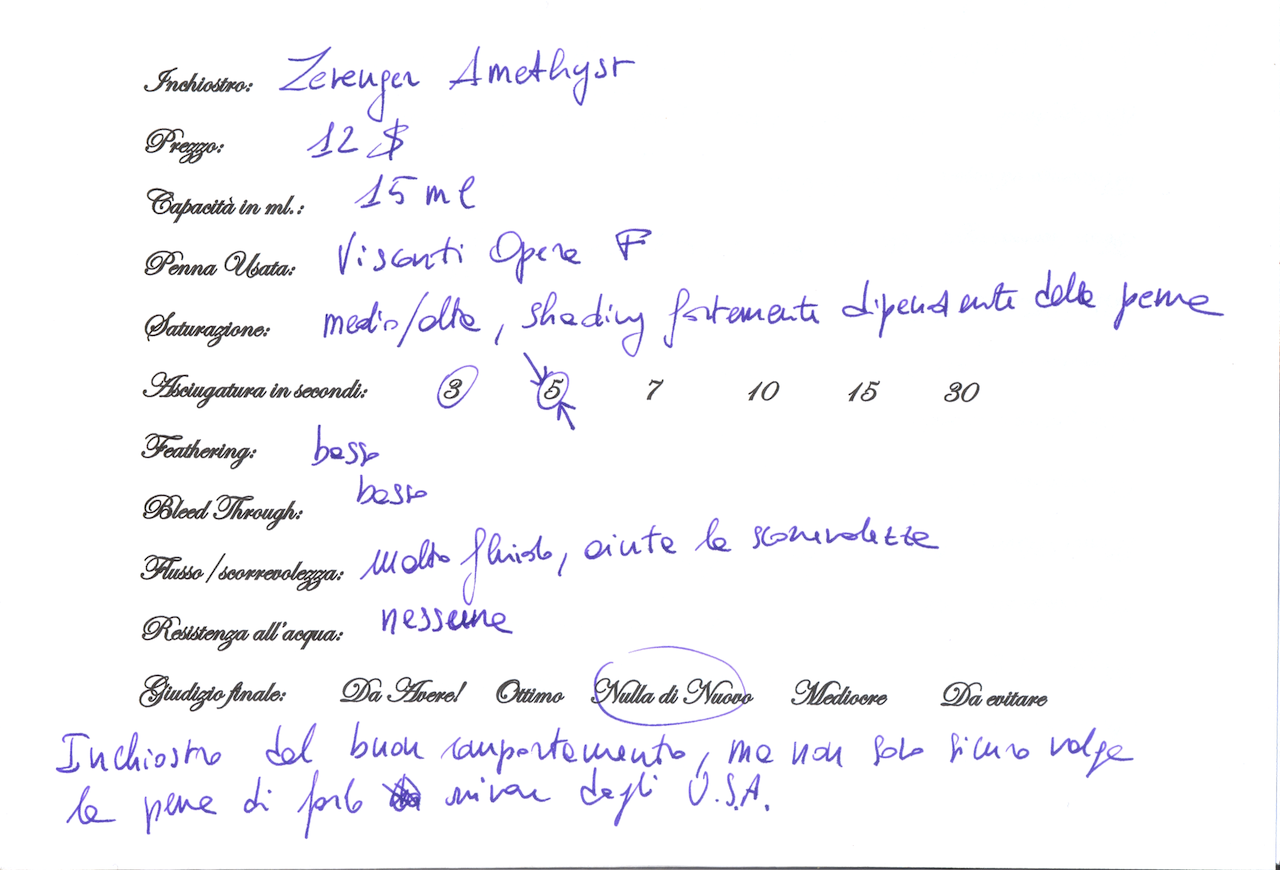 Inchiostro: Zerenger Amethyst
Prezzo: 12 $
Capacità in ml.: 15 ml
Penna Usata: Visconti Opera F
Saturazione: medio/alta, shading fortemente dipendente dalla penna
Asciugatura in secondi: 3 5 7 10 15 30
Feathering: basso
Bleed Through: basso
Flusso/scorrevolezza: Molto fluido, aiuta la scorrevolezza
Resistenza all'acqua: nessuna
Giudizio finale: Da Avere! Ottimo Nulla di Nuovo Mediocre Da evitare
Inchiostro dal buon comportamento, ma non sono sicuro valga
la pena di farlo arrivare dagli U.S.A.